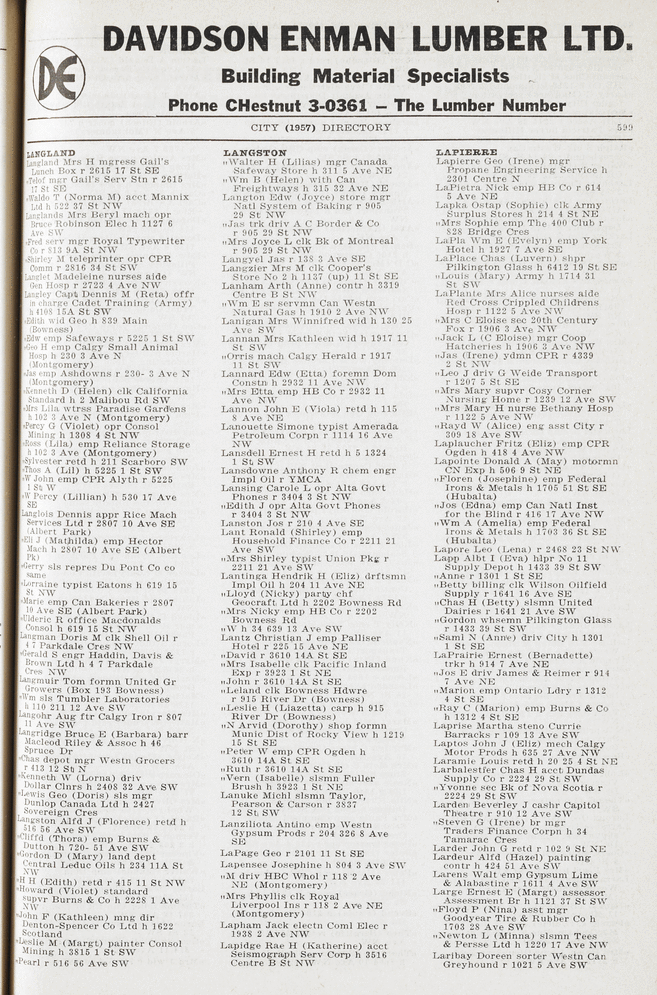 DE
DAVIDSON ENMAN LUMBER LTD.
Building Material Specialists
Phone CHestnut 3-0361 – The Lumber Number
CITY (1957) DIRECTORY 599
LANGLAND
Langland Mrs H mgress Gail's
Lunch Box r 2615 17 St SE
„Telof mgr Gail's Serv Stn r 2615
17 St SE
„Waldo T (Norma M) acct Mannix
Ltd h 522 37 St NW
Langlands Mrs Beryl mach opr
Bruce Robinson Elec h 1127 6
Ave SW
„Fred serv mgr Royal Typewriter
Co r 813 9A St NW
„Shirley M teleprinter opr CPR
Comm r 2816 34 St SW
Langlet Madeleine nurses aide
Gen Hosp r 2723 4 Ave NW
Langley Capt Dennis M (Reta) offr
in charge Cadet Training (Army)
h 4108 15A St SW
„Edith wid Geo h 839 Main
(Bowness)
„Edw emp Safeways r 5225 1 St SW
„Geo H emp Calgy Small Animal
Hosp h 230 3 Ave N
(Montgomery)
„Jas emp Ashdowns r 230- 3 Ave N
(Montgomery)
„Kenneth D (Helen) clk California
Standard h 2 Malibou Rd SW
„Mrs Lila wtrss Paradise Gardens
h 102 3 Ave N (Montgomery)
„Percy G (Violet) opr Consol
Mining h 1308 4 St NW
„Ross (Lila) emp Reliance Storage
h 102 3 Ave (Montgomery)
„Sylvester retd h 211 Scarboro SW
„Thos A (Lil) h 5225 1 St SW
„W John emp CPR Alyth r 5225
1 St W
„W Percy (Lillian) h 530 17 Ave
SE
Langlois Dennis appr Rice Mach
Services Ltd r 2807 10 Ave SE
(Albert Park)
„Eli J (Mathilda) emp Hector
Mach h 2807 10 Ave SE (Albert
Pk)
„Gerry sls repres Du Pont Co co
same
„Lorraine typist Eatons h 619 15
St NW
„Marie emp Can Bakeries r 2807
10 Ave SE (Albert Park)
„Ulderic R office Macdonalds
Consol h 619 15 St NW
Langman Doris M clk Shell Oil r
4 7 Parkdale Cres NW
„Gerald S engr Haddin, Davis &
Brown Ltd h 4 7 Parkdale
Cres NW
Langmuir Tom formn United Gr
Growers (Box 193 Bowness)
„Wm sls Tumbler Laboratories
h 110 211 12 Ave SW
Langohr Aug ftr Calgy Iron r 807
11 Ave SW
Langridge Bruce E (Barbara) barr
Macleod Riley & Assoc h 46
Spruce Dr
„Chas depot mgr Westn Grocers
r 413 12 St N
„Kenneth W (Lorna) driv
Dollar Clnrs h 2408 32 Ave SW
„Lewis Geo (Doris) sls mgr
Dunlop Canada Ltd h 2427
Sovereign Cres
Langston Alfd J (Florence) retd h
516 56 Ave SW
„Cliffd (Thora) emp Burns &
Dutton h 720- 51 Ave SW
„Gordon D (Mary) land dept
Central Leduc Oils h 234 11A St
NW
„H H (Edith) retd r 415 11 St NW
„Howard (Violet) standard
supvr Burns & Co h 2228 1 Ave
NW
„John F (Kathleen) mng dir
Denton-Spencer Co Ltd h 1622
Scotland
„Leslie M (Margt) painter Consol
Mining h 3815 1 St SW
„Pearl r 516 56 Ave SW
LANGSTON
„Walter H (Lilias) mgr Canada
Safeway Store h 311 5 Ave NE
„Wm B (Helen) with Can
Freightways h 315 32 Ave NE
Langton Edw (Joyce) store mgr
Natl System of Baking r 905
29 St NW
„Jas trk driv A C Border & Co
r 905 29 St NW
„Mrs Joyce L clk Bk of Montreal
r 905 29 St NW
Langyel Jas r 138 3 Ave SE
Langzier Mrs M clk Cooper's
Store No 2 h 1137 (up) 11 St SE
Lanham Arth (Anne) contr h 3319
Centre B St NW
„Wm E sr servmn Can Westn
Natural Gas h 1910 2 Ave NW
Lanigan Mrs Winnifred wid h 130 25
Ave SW
Lannan Mrs Kathleen wid h 1917 11
St SW
„Orris mach Calgy Herald r 1917
11 St SW
Lannard Edw (Etta) foremn Dom
Constn h 2932 11 Ave NW
„Mrs Etta emp HB Co r 2932 11
Ave NW
Lannon John E (Viola) retd h 115
8 Ave NE
Lanouette Simone typist Amerada
Petroleum Corpn r 1114 16 Ave
NW
Lansdell Ernest H retd h 5 1324
1 St SW
Lansdowne Anthony R chem engr
Impl Oil r YMCA
Lansing Carole L opr Alta Govt
Phones r 3404 3 St NW
„Edith J opr Alta Govt Phones
r 3404 3 St NW
Lanston Jos r 210 4 Ave SE
Lant Ronald (Shirley) emp
Household Finance Co r 2211 21
Ave SW
„Mrs Shirley typist Union Pkg r
2211 21 Ave SW
Lantinga Hendrik H (Eliz) drftsmn
Impl Oil h 204 11 Ave NE
„Lloyd (Nicky) party chf
Geocraft Ltd h 2202 Bowness Rd
„Mrs Nicky emp HB Co r 2202
Bowness Rd
„W h 34 639 13 Ave SW
Lantz Christian J emp Palliser
Hotel r 225 15 Ave NE
„David r 3610 14A St SE
„Mrs Isabelle clk Pacific Inland
Exp r 3923 1 St NE
„John r 3610 14A St SE
„Leland clk Bowness Hdwre
r 915 River Dr (Bowness)
„Leslie H (Liazetta) carp h 915
River Dr (Bowness)
„N Arvid (Dorothy) shop formn
Munic Dist of Rocky View h 1219
15 St SE
„Peter W emp CPR Ogden h
3610 14A St SE
„Ruth r 3610 14A St SE
„Vern (Isabelle) slsmn Fuller
Brush h 3923 1 St NE
Lanuke Michl slsmn Taylor,
Pearson & Carson r 3837
12 St SW
Lanziliota Antino emp Westn
Gypsum Prods r 204 326 8 Ave
SE
LaPage Geo r 2101 11 St SE
Lapensee Josephine h 804 3 Ave SW
„M driv HBC Whol r 118 2 Ave
NE (Montgomery)
„Mrs Phyllis clk Royal
Liverpool Ins r 118 2 Ave NE
(Montgomery)
Lapham Jack electn Coml Elec r
1938 2 Ave NW
Lapidge Rae H (Katherine) acct
Seismograph Serv Corp h 3516
Centre B St NW
LAPIERRE
Lapierre Geo (Irene) mgr
Propane Engineering Service h
2301 Centre N
LaPietra Nick emp HB Co r 614
5 Ave NE
Lapka Ostap (Sophie) clk Army
Surplus Stores h 214 4 St NE
„Mrs Sophie emp The 400 Club r
828 Bridge Cres
LaPla Wm E (Evelyn) emp York
Hotel h 1927 7 Ave SE
LaPlace Chas (Luvern) shpr
Pilkington Glass h 6412 19 St SE
„Louis (Mary) Army h 1714 31
St SW
LaPlante Mrs Alice nurses aide
Red Cross Crippled Childrens
Hosp r 1122 5 Ave NW
„Mrs C Eloise sec 20th Century
Fox r 1906 3 Ave NW
„Jack L (C Eloise) mgr Coop
Hatcheries h 1906 3 Ave NW
„Jas (Irene) ydmn CPR r 4339
2 St NW
„Leo J driv G Weide Transport
r 1207 5 St SE
„Mrs Mary supvr Cosy Corner
Nursing Home r 1239 12 Ave SW
„Mrs Mary H nurse Bethany Hosp
r 1122 5 Ave NW
„Rayd W (Alice) eng asst City r
309 18 Ave SW
Laplaucher Fritz (Eliz) emp CPR
Ogden h 418 4 Ave NW
Lapointe Donald A (May) motormn
CN Exp h 506 9 St NE
„Floren (Josephine) emp Federal
Irons & Metals h 1705 51 St SE
(Hubalta)
„Jos (Edna) emp Can Natl Inst
for the Blind r 416 17 Ave NW
„Wm A (Amelia) emp Federal
Irons & Metals h 1703 36 St SE
(Hubalta)
Lapore Leo (Lena) r 2468 23 St NW
Lapp Albt I (Eva) hlpr No 11
Supply Depot h 1433 39 St SW
„Anne r 1301 1 St SE
„Betty billing clk Wilson Oilfield
Supply r 1641 16 Ave SE
„Chas H (Betty) slsmn United
Dairies r 1641 21 Ave SW
„Gordon whsemn Pilkington Glass
r 1433 39 St SW
„Sami N (Anne) driv City h 1301
1 St SE
LaPrairie Ernest (Bernadette)
trkr h 914 7 Ave NE
„Jos E driv James & Reimer r 914
7 Ave NE
„Marion emp Ontario Ldry r 1312
4 St SE
„Ray C (Marion) emp Burns & Co
h 1312 4 St SE
Laprise Martha steno Currie
Barracks r 109 13 Ave SW
Laptos John J (Eliz) mech Calgy
Motor Prods h 635 27 Ave NW
Laramie Louis retd h 20 25 4 St NE
Larbalestier Chas H acct Dundas
Supply Co r 2224 29 St SW
„Yvonne sec Bk of Nova Scotia r
2224 29 St SW
Larden Beverley J cashr Capitol
Theatre r 910 12 Ave SW
„Steven G (Irene) br mgr
Traders Finance Corpn h 34
Tamarac Cres
Larder John G retd r 102 9 St NE
Lardeur Alfd (Hazel) painting
contr h 424 51 Ave SW
Larens Walt emp Gypsum Lime
& Alabastine r 1611 4 Ave SW
Large Ernest E (Margt) assessor
Assessment Br h 1121 37 St SW
„Floyd P (Nina) asst mgr
Goodyear Tire & Rubber Co h
1703 28 Ave SW
„Newton L (Minna) slsmn Tees
& Persse Ltd h 1220 17 Ave NW
Laribay Doreen sorter Westn Can
Greyhound r 1021 5 Ave SW